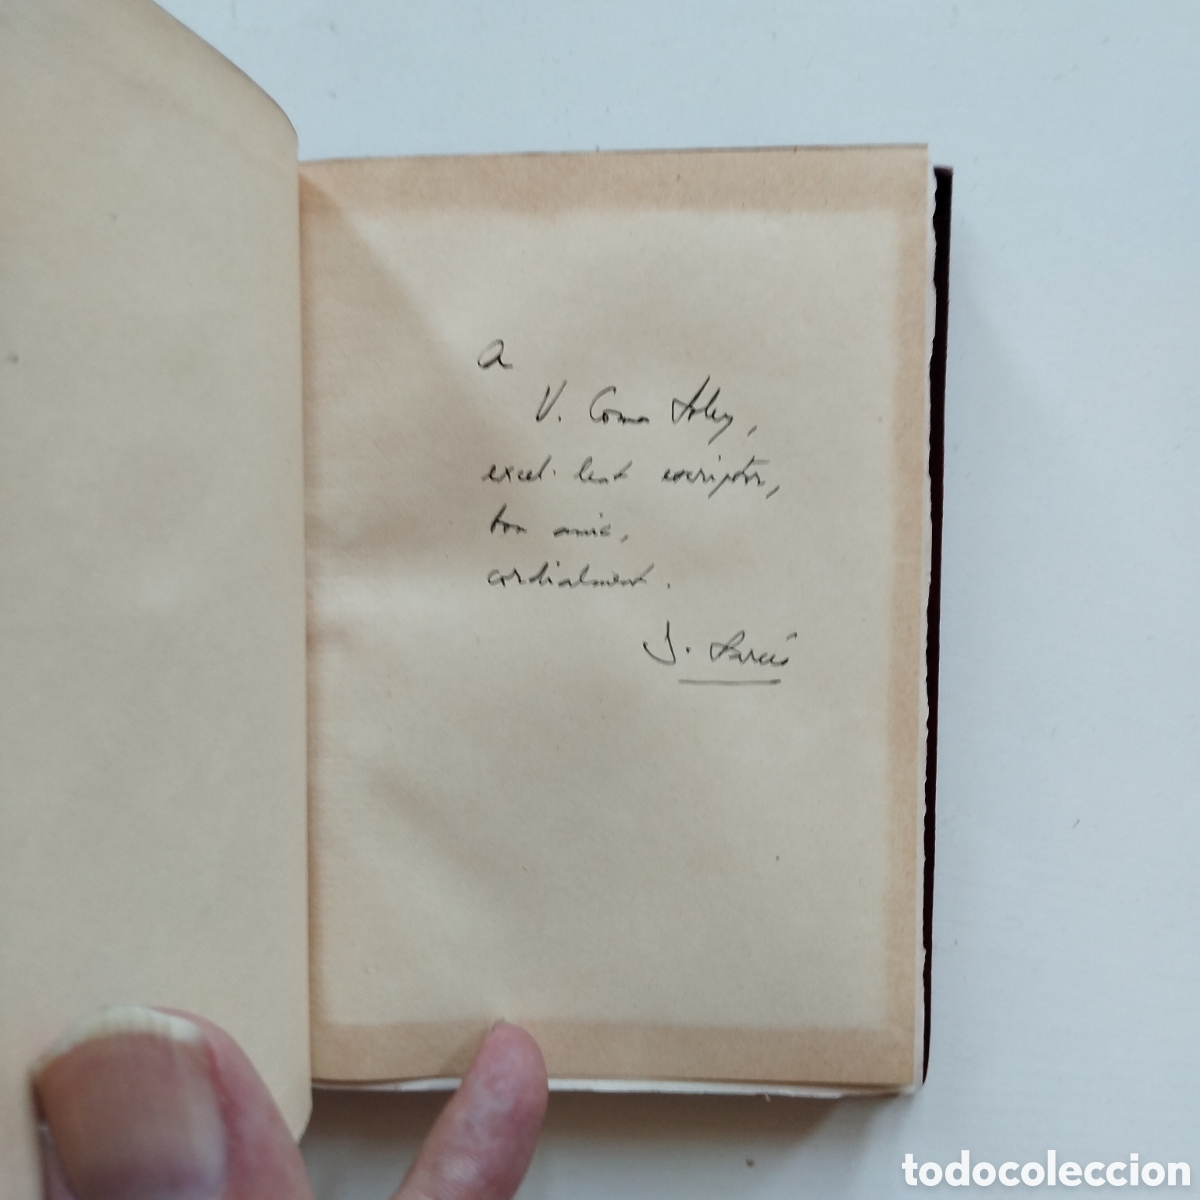 a
V. Coma Soley,
excel·lent escriptor,
bon amic,
cordialment.
J.
todocoleccion